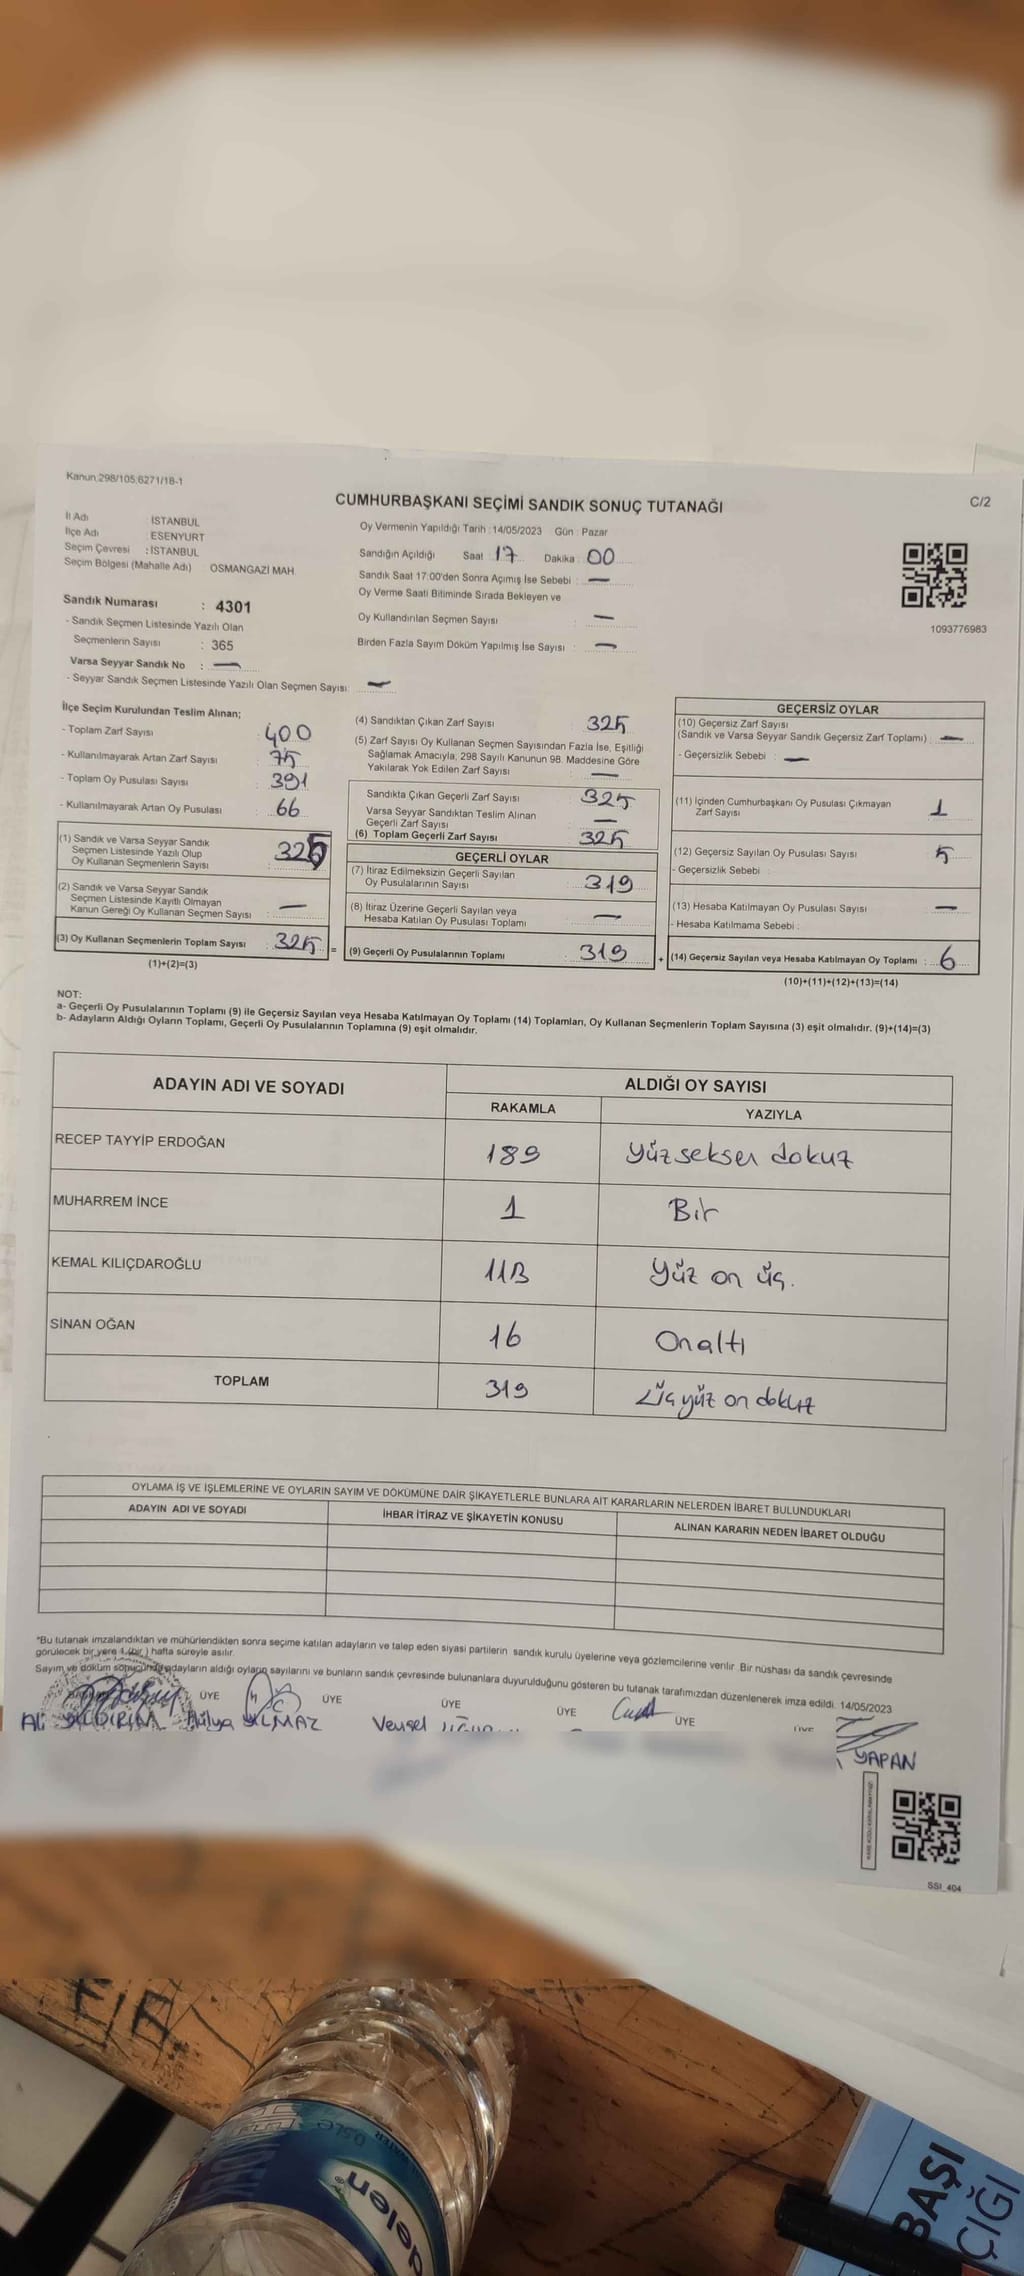 Kanun:298/105;6271/18-1
C/2
CUMHURBAŞKANI SEÇİMİ SANDIK SONUÇ TUTANAĞI
İl Adı : İSTANBUL
İlçe Adı : ESENYURT
Seçim Çevresi : İSTANBUL
Seçim Bölgesi (Mahalle Adı) OSMANGAZİ MAH
Sandık Numarası : 4301
- Sandık Seçmen Listesinde Yazılı Olan
Seçmenlerin Sayısı : 365
Varsa Seyyar Sandık No : —
- Seyyar Sandık Seçmen Listesinde Yazılı Olan Seçmen Sayısı —
Oy Vermenin Yapıldığı Tarih : 14/05/2023 Gün : Pazar
Sandığın Açıldığı Saat : 17 Dakika : 00
Sandık Saat 17:00'den Sonra Açımış İse Sebebi : —
Oy Verme Saati Bitiminde Sırada Bekleyen ve
Oy Kullandırılan Seçmen Sayısı : —
Birden Fazla Sayım Döküm Yapılmış İse Sayısı : —
1093776983
İlçe Seçim Kurulundan Teslim Alınan;
- Toplam Zarf Sayısı : 400
- Kullanılmayarak Artan Zarf Sayısı : 75
- Toplam Oy Pusulası Sayısı : 391
- Kullanılmayarak Artan Oy Pusulası : 66
(1) Sandık ve Varsa Seyyar Sandık
Seçmen Listesinde Yazılı Olup
Oy Kullanan Seçmenlerin Sayısı : 325
(2) Sandık ve Varsa Seyyar Sandık
Seçmen Listesinde Kayıtlı Olmayan
Kanun Gereği Oy Kullanan Seçmen Sayısı : —
(3) Oy Kullanan Seçmenlerin Toplam Sayısı : 325 =
(1)+(2)=(3)
(4) Sandıktan Çıkan Zarf Sayısı : 325
(5) Zarf Sayısı Oy Kullanan Seçmen Sayısından Fazla İse, Eşitliği
Sağlamak Amacıyla; 298 Sayılı Kanunun 98. Maddesine Göre
Yakılarak Yok Edilen Zarf Sayısı : —
Sandıkta Çıkan Geçerli Zarf Sayısı : 325
Varsa Seyyar Sandıktan Teslim Alınan
Geçerli Zarf Sayısı : —
(6) Toplam Geçerli Zarf Sayısı : 325
GEÇERLİ OYLAR
(7) İtiraz Edilmeksizin Geçerli Sayılan
Oy Pusulalarının Sayısı : 319
(8) İtiraz Üzerine Geçerli Sayılan veya
Hesaba Katılan Oy Pusulası Toplamı : —
(9) Geçerli Oy Pusulalarının Toplamı : 319 +
GEÇERSİZ OYLAR
(10) Geçersiz Zarf Sayısı
(Sandık ve Varsa Seyyar Sandık Geçersiz Zarf Toplamı) : —
- Geçersizlik Sebebi : —
(11) İçinden Cumhurbaşkanı Oy Pusulası Çıkmayan
Zarf Sayısı : 1
(12) Geçersiz Sayılan Oy Pusulası Sayısı : 5
- Geçersizlik Sebebi :
(13) Hesaba Katılmayan Oy Pusulası Sayısı : —
- Hesaba Katılmama Sebebi :
(14) Geçersiz Sayılan veya Hesaba Katılmayan Oy Toplamı : 6
(10)+(11)+(12)+(13)=(14)
NOT:
a- Geçerli Oy Pusulalarının Toplamı (9) ile Geçersiz Sayılan veya Hesaba Katılmayan Oy Toplamı (14) Toplamları, Oy Kullanan Seçmenlerin Toplam Sayısına (3) eşit olmalıdır. (9)+(14)=(3)
b- Adayların Aldığı Oyların Toplamı, Geçerli Oy Pusulalarının Toplamına (9) eşit olmalıdır.
ADAYIN ADI VE SOYADI ALDIĞI OY SAYISI
RAKAMLA YAZIYLA
RECEP TAYYİP ERDOĞAN 189 Yüzseksen dokuz
MUHARREM İNCE 1 Bir
KEMAL KILIÇDAROĞLU 113 Yüz on üç.
SİNAN OĞAN 16 Onaltı
TOPLAM 319 Üçyüz on dokuz
OYLAMA İŞ VE İŞLEMLERİNE VE OYLARIN SAYIM VE DÖKÜMÜNE DAİR ŞİKAYETLERLE BUNLARA AİT KARARLARIN NELERDEN İBARET BULUNDUKLARI
ADAYIN ADI VE SOYADI İHBAR İTİRAZ VE ŞİKAYETİN KONUSU ALINAN KARARIN NEDEN İBARET OLDUĞU
*Bu tutanak imzalandıktan ve mühürlendikten sonra seçime katılan adayların ve talep eden siyasi partilerin sandık kurulu üyelerine veya gözlemcilerine verilir. Bir nüshası da sandık çevresinde
görülecek bir yere 1 (bir ) hafta süreyle asılır.
Sayım ve döküm sonucunda adayların aldığı oyların sayılarını ve bunların sandık çevresinde bulunanlara duyurulduğunu gösteren bu tutanak tarafımızdan düzenlenerek imza edildi. 14/05/2023
ÜYE ÜYE ÜYE ÜYE ÜYE ÜYE
Ali YILDIRIM Hülya YILMAZ Veysel
YAPAN
SSI_404
EfE
0,5Le
delen
BAŞI
ÇIĞI